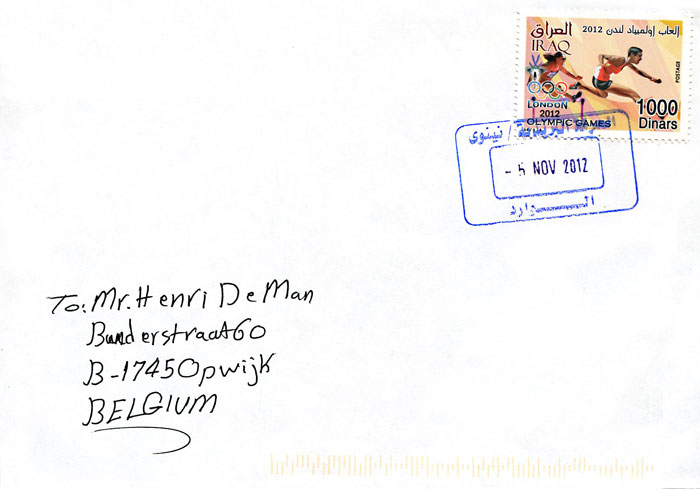 العراق
العاب اولمبياد لندن 2012
IRAQ
POSTAGE
LONDON
2012
OLYMPIC GAMES
1000
Dinars
نينوى
- 5 NOV 2012
الـــوارد
To: Mr. Henri De Man
Bunderstraat 60
B-1745 Opwijk
BELGIUM